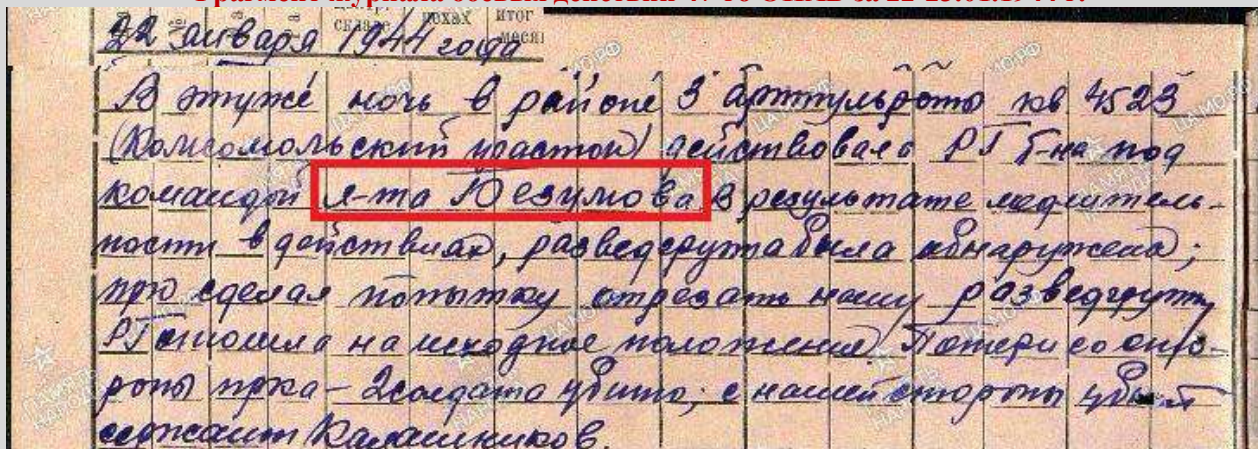 22 января 1944 года
В эту же ночь в районе 3 Арттульдота кв 4523
(Комсомольский участок) действовала РГ б-на под
командой л-та Юезумова. В результате медлитель-
ности в действиях, разведгруппа была обнаружена;
пр-к сделал попытку отрезать нашу разведгруппу
РГ отошла на исходное положение. Потери со сто-
роны пр-ка – 2 солдата убито; с нашей стороны убит
сержант Калашников.